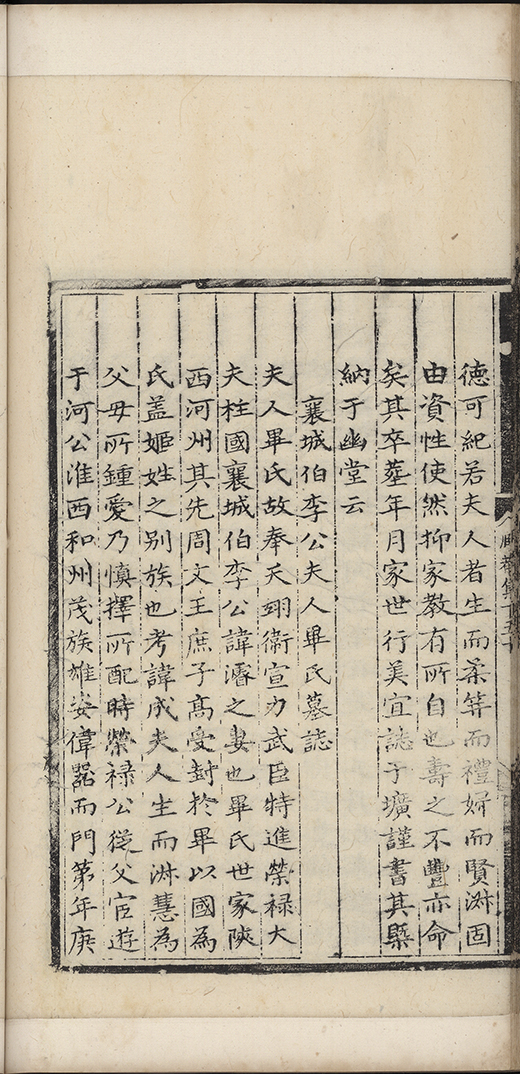 德可紀若夫人者生而柔笄而禮婦而賢淑固
由資性使然抑家教有所自也壽之不豐亦命
矣其卒塟年月家世行美宜誌于壙謹書其槩
納于幽堂云
襄城伯李公夫人畢氏墓誌
夫人畢氏故奉天翊衛宣力武臣特進榮禄大
夫柱國襄城伯李公諱濬之妻也畢氏世家陝
西河州其先周文王庶子髙受封於畢以國為
氏盖姬姓之别族也考諱成夫人生而淑慧為
父母所鍾愛乃慎擇所配時榮禄公從父宦遊
于河公淮西和州茂族雄姿偉噐而門第年庚